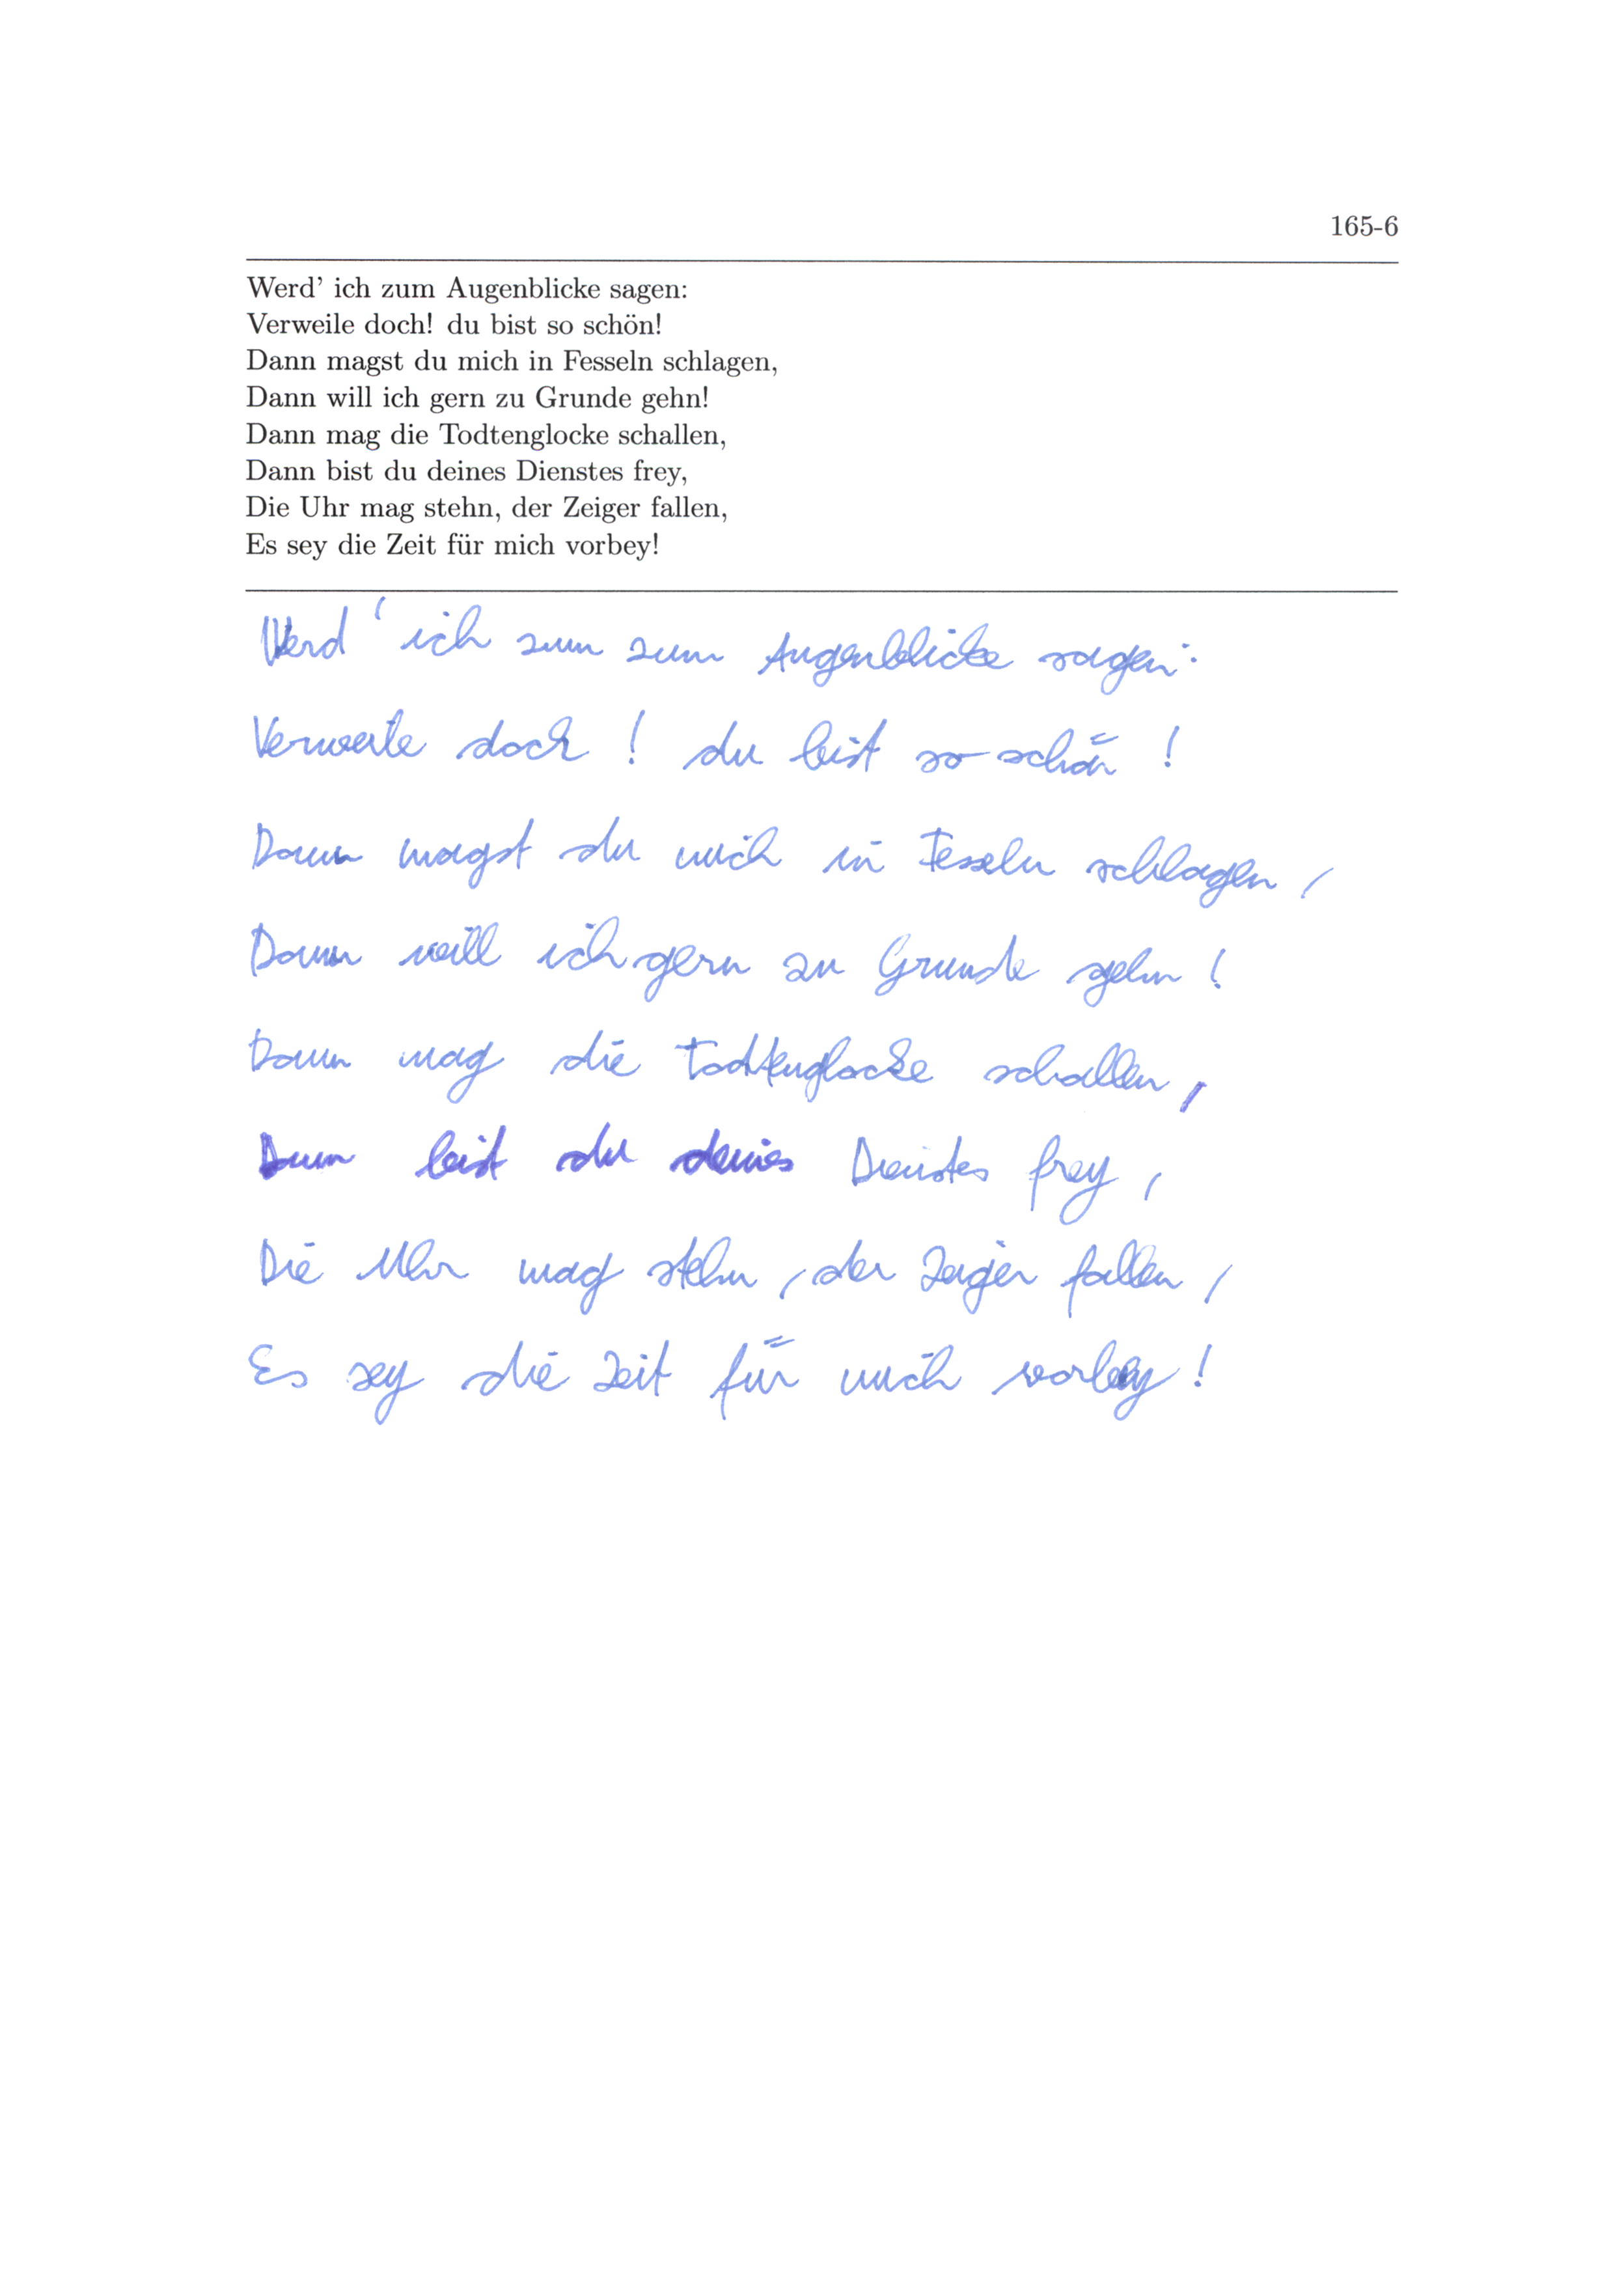 165-6
Werd' ich zum Augenblicke sagen:
Verweile doch! du bist so schön!
Dann magst du mich in Fesseln schlagen,
Dann will ich gern zu Grunde gehn!
Dann mag die Todtenglocke schallen,
Dann bist du deines Dienstes frey,
Die Uhr mag stehn, der Zeiger fallen,
Es sey die Zeit für mich vorbey!
Werd' ich zum zum Augenblicke sagen:
Verweile doch! du bist so schön!
Dann magst du mich in Fesseln schlagen,
Dann will ich gern zu Grunde gehn!
Dann mag die Todtenglocke schallen,
Dann bist du deines Dienstes frey,
Die Uhr mag stehn, der Zeiger fallen,
Es sey die Zeit für mich vorbey!